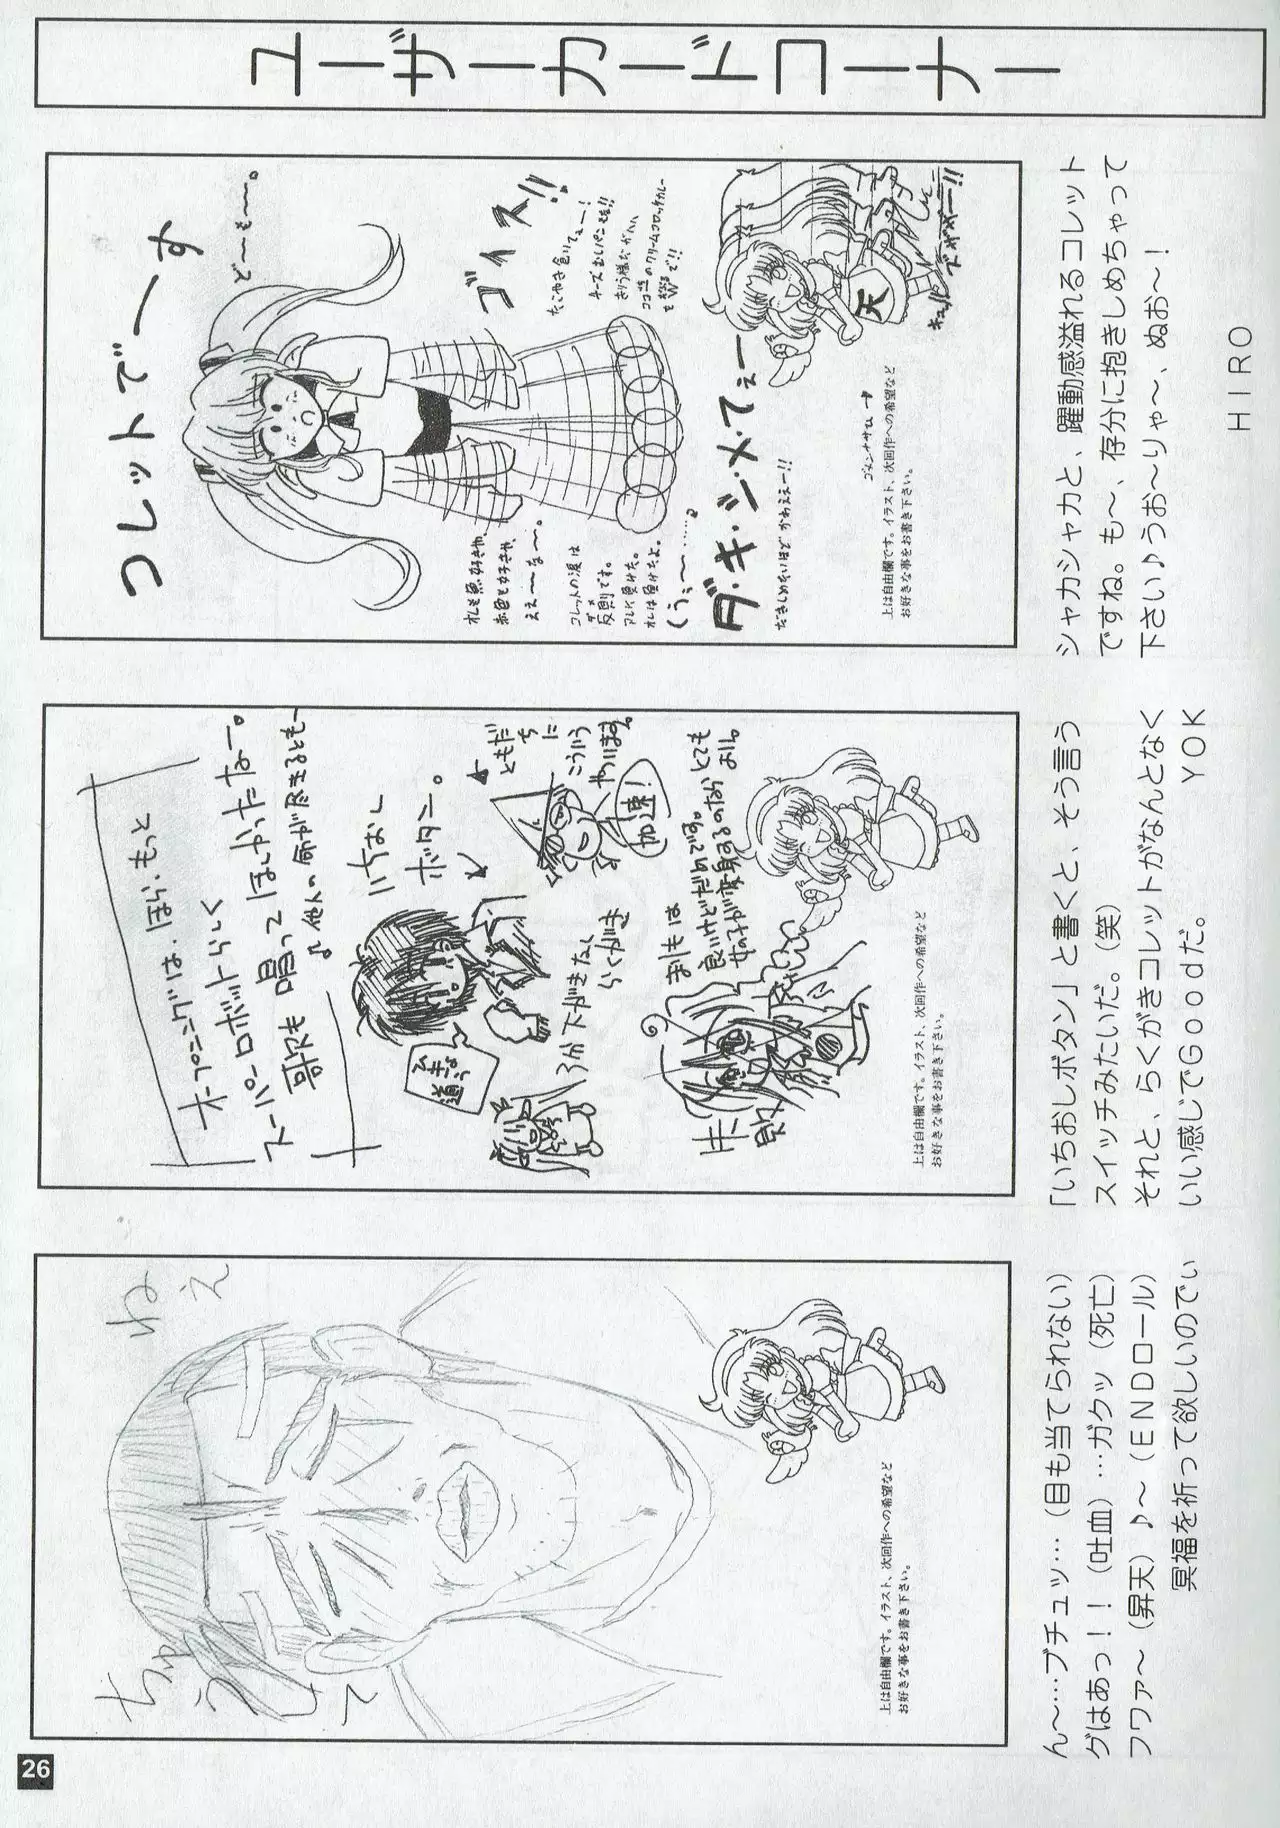 ユーザーカードコーナー
ん～…ブチュッ…（目も当てられない）
グはあっ！！（吐血）…ガクッ（死亡）
フワァ～（昇天）♪～（ＥＮＤロール）
冥福を祈って欲しいのでぃ
ちゅ
う
して
ねえ
上は自由欄です。イラスト、次回作への希望など
お好きな事をお書き下さい。
「いちおしボタン」と書くと、そう言う
スイッチみたいだ。（笑）
それと、らくがきコレットがなんとなく
いい感じでＧｏｏｄだ。
ＹＯＫ
オープニングは、ほら、もっと
スーパーロボットらしく
歌も唱ってほしかったなー。
♪他人の命が尽きるともー
いちおし
ボタン。
ともだち
に
こういう
やついます。
加速！
3分下がきなし
らくがき
まりもは
良いけどだめです。
女の子が変身するのならとても
よし。
上は自由欄です。イラスト、次回作への希望など
お好きな事をお書き下さい。
シャカシャカと、躍動感溢れるコレット
ですね。も～、存分に抱きしめちゃって
下さい♪うお～りゃ～、ぬお～！
ＨＩＲＯ
コレットでーす
ど～も～。
オレも魚好きや、
赤色も好きや、
ええーなー。
ゴイス!!
コレットの涙は
反則です。
オレは負けたよ。
(うぅ～……♪
ダ・キ・シ・メ・てぇー
だきしめたいほどかわええー!!
天
上は自由欄です。イラスト、次回作への希望など
お好きな事をお書き下さい。
26